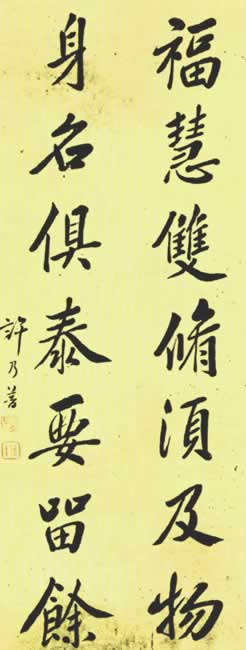 福慧雙脩湏及物
身名俱泰要留餘
許乃普